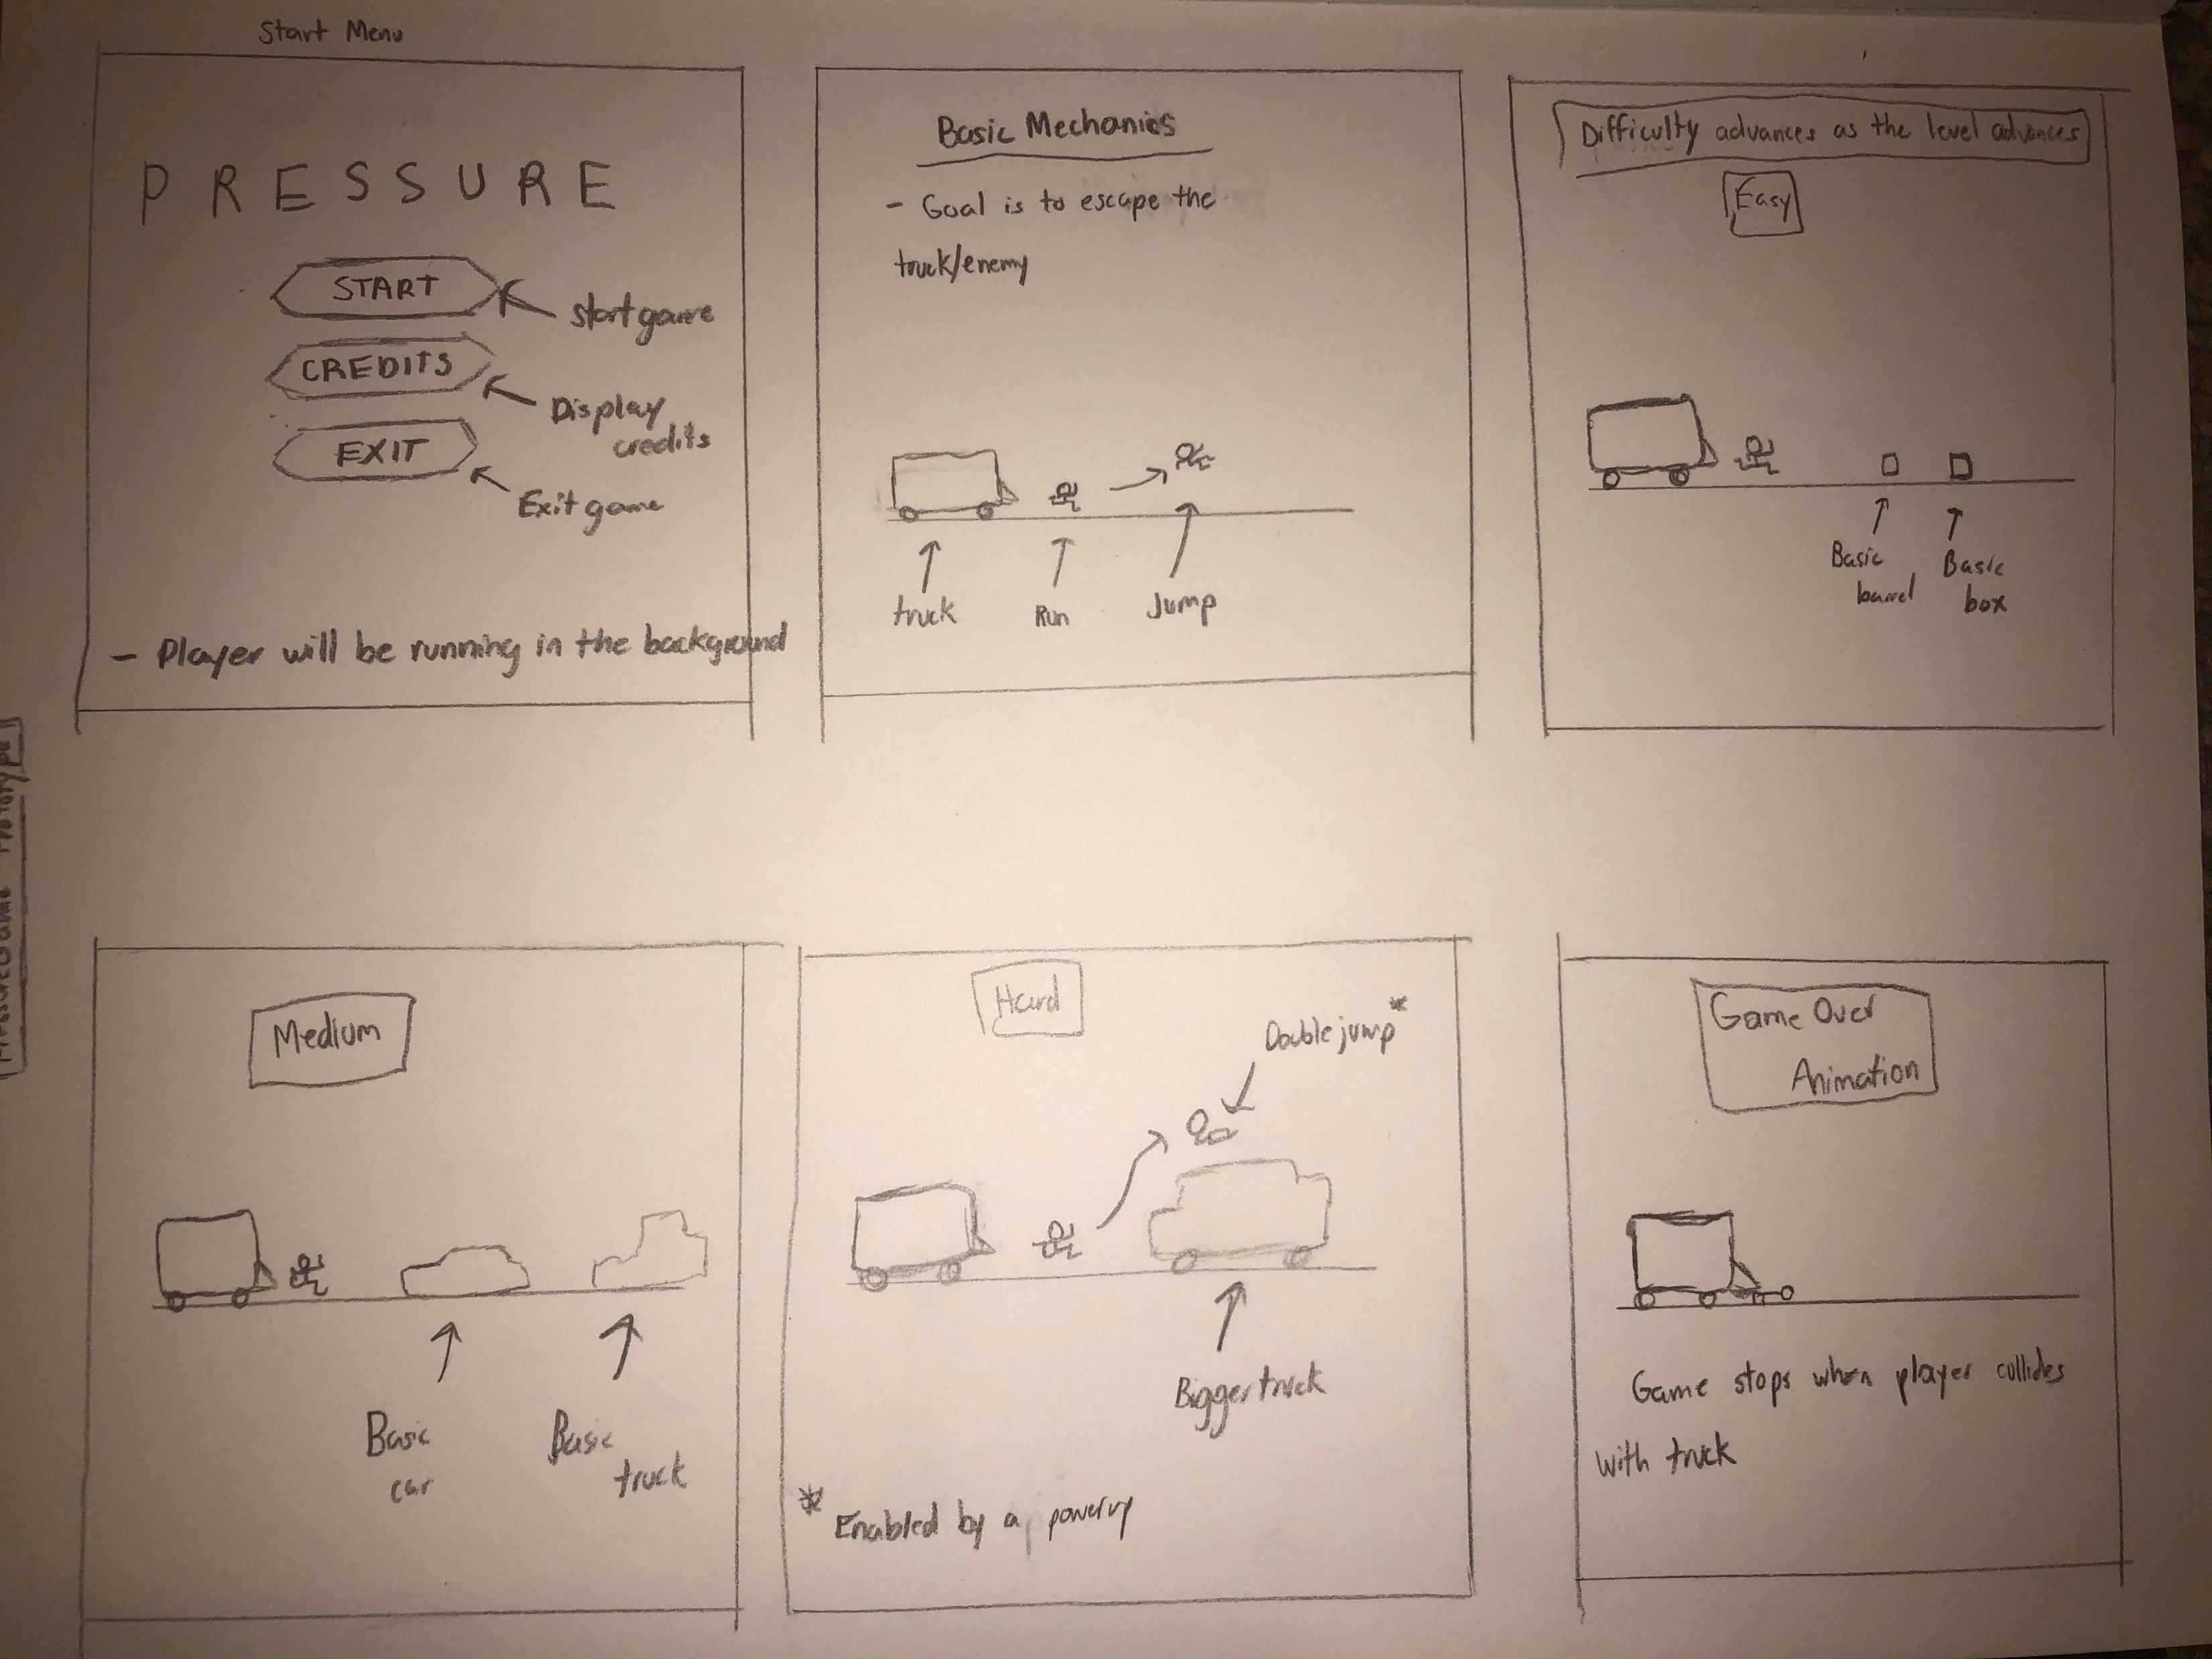 Start Menu
PRESSURE
START
start game
CREDITS
Display
credits
EXIT
Exit game
- Player will be running in the background
Basic Mechanics
- Goal is to escape the
truck/enemy
truck
Run
Jump
Difficulty advances as the level advances
Easy
Basic
barrel
Basic
box
Medium
Basic
car
Basic
truck
Hard
Double jump*
Bigger truck
* Enabled by a powerup
Game Over
Animation
Game stops when player collides
with truck
Prototype